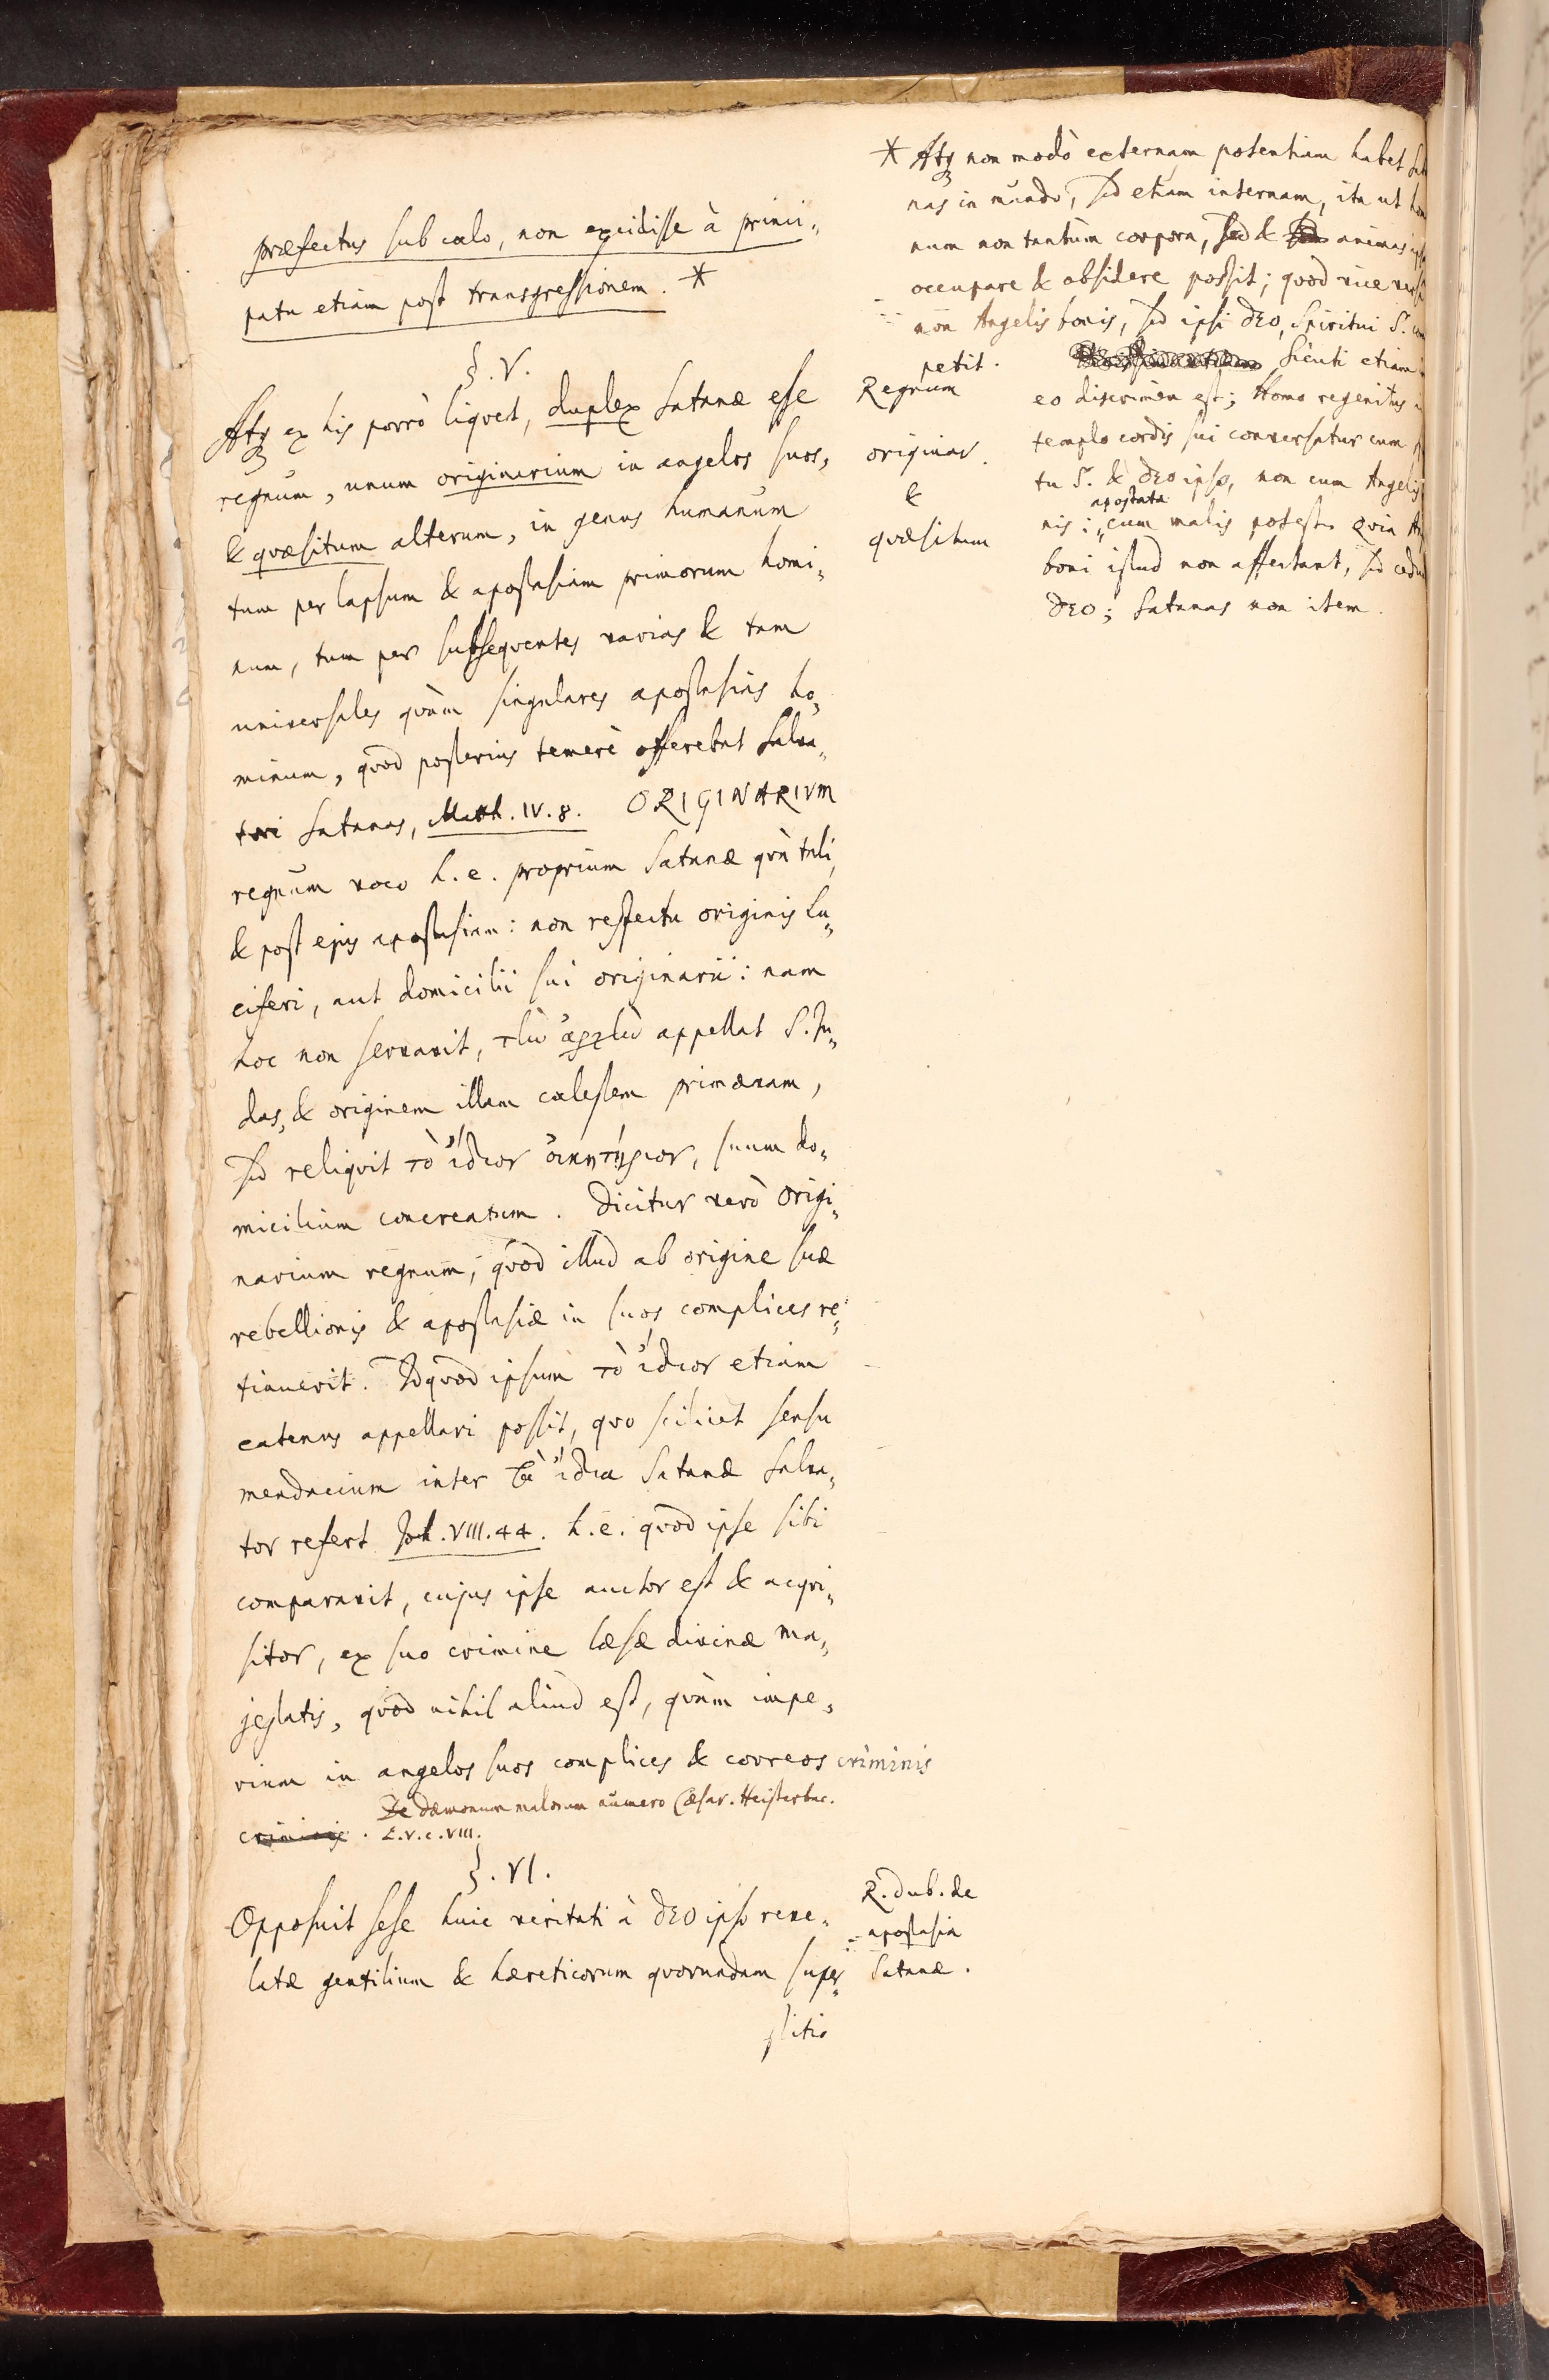 præfectus sub cælo, non excidisse à princi-
patu etiam post transgressionem. *
§. V.
Atq; ex his porrò liqvet, duplex Satanæ esse
regnum, unum originarium in angelos suos,
& qvæsitum alterum, in genus humanum
tum per lapsum & apostasiam primorum homi-
num, tum per subseqventes varias & tam
universales qvàm singulares apostasias ho-
minum, qvod posterius temerè offerebat Salva-
tori Satanas, Matth. IV. 8. ORIGINARIVM
regnum voco h. e. proprium Satanæ qvà tali,
& post ejus apostasiam: non respectu originis Lu-
ciferi, aut domicilii sui originarii: nam
hoc non servavit, τὴν ἀρχὴν appellat S. Ju-
das, & originem illam cælestem primævam,
sed reliqvit τὸ ἴδιον οἰκητήριον, suum do-
micilium concreatum. Dicitur verò origi-
narium regnum, qvod illud ab origine suæ
rebellionis & apostasiæ in suos complices re-
tinuerit. Idqvod ipsum τὸ ἴδιον etiam
eatenus appellari possit, qvo scilicet sensu
mendacium inter τὰ ἴδια Satanæ Salva-
tor refert Joh. VIII. 44. h. e. qvod ipse sibi
comparavit, cujus ipse auctor est & acqvi-
sitor, ex suo crimine læsæ divinæ ma-
jestatis, qvod nihil aliud est, qvàm impe-
rium in angelos suos complices & correos criminis
criminis. De dæmonum malorum numero Cæsar. Heisterbac.
L. V. c. VIII.
§. VI.
Opposuit sese huic veritati à DEO ipso reve-
latæ gentilium & hæreticorum qvorundam super-
stitio
* Atq; non modò externam potentiam habet Sat
nas in mundo, sed etiam internam, ita ut ho
num non tantùm corpora, sed & animas
occupare & obsidere possit; qvod vice versa
non Angelis bonis, sed ipsi DEO, Spiritui S. com
petit. Sicuti etiam
eo discrimen est; Homo regenitus
templo cordis sui conversatur cum
tu S. & DEO ipso, non cum Angelis
nis; apostata cum malis potest. Qvia An
boni istud non affectant, sed cedu
DEO; Satanas non item.
Regnum
originar.
&
qvæsitum
R. dub. de
apostasia
Satanæ.